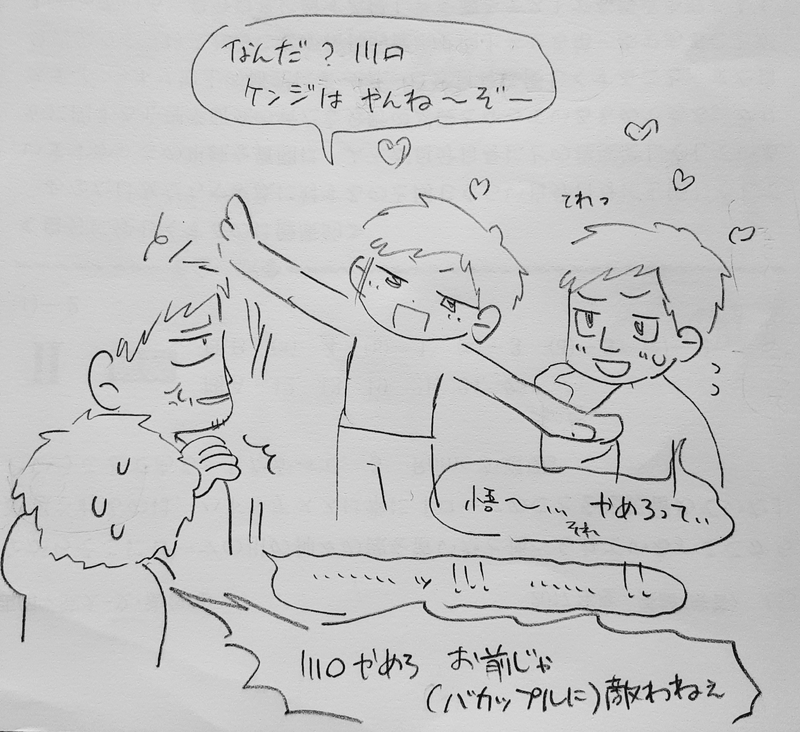 なんだ？川口
ケンジは やんね〜ぞー
てれっ
悟〜… やめろって..
それ
……… ッ !!! …… !!
川口やめろ お前じゃ
（バカップルに）敵わねぇ